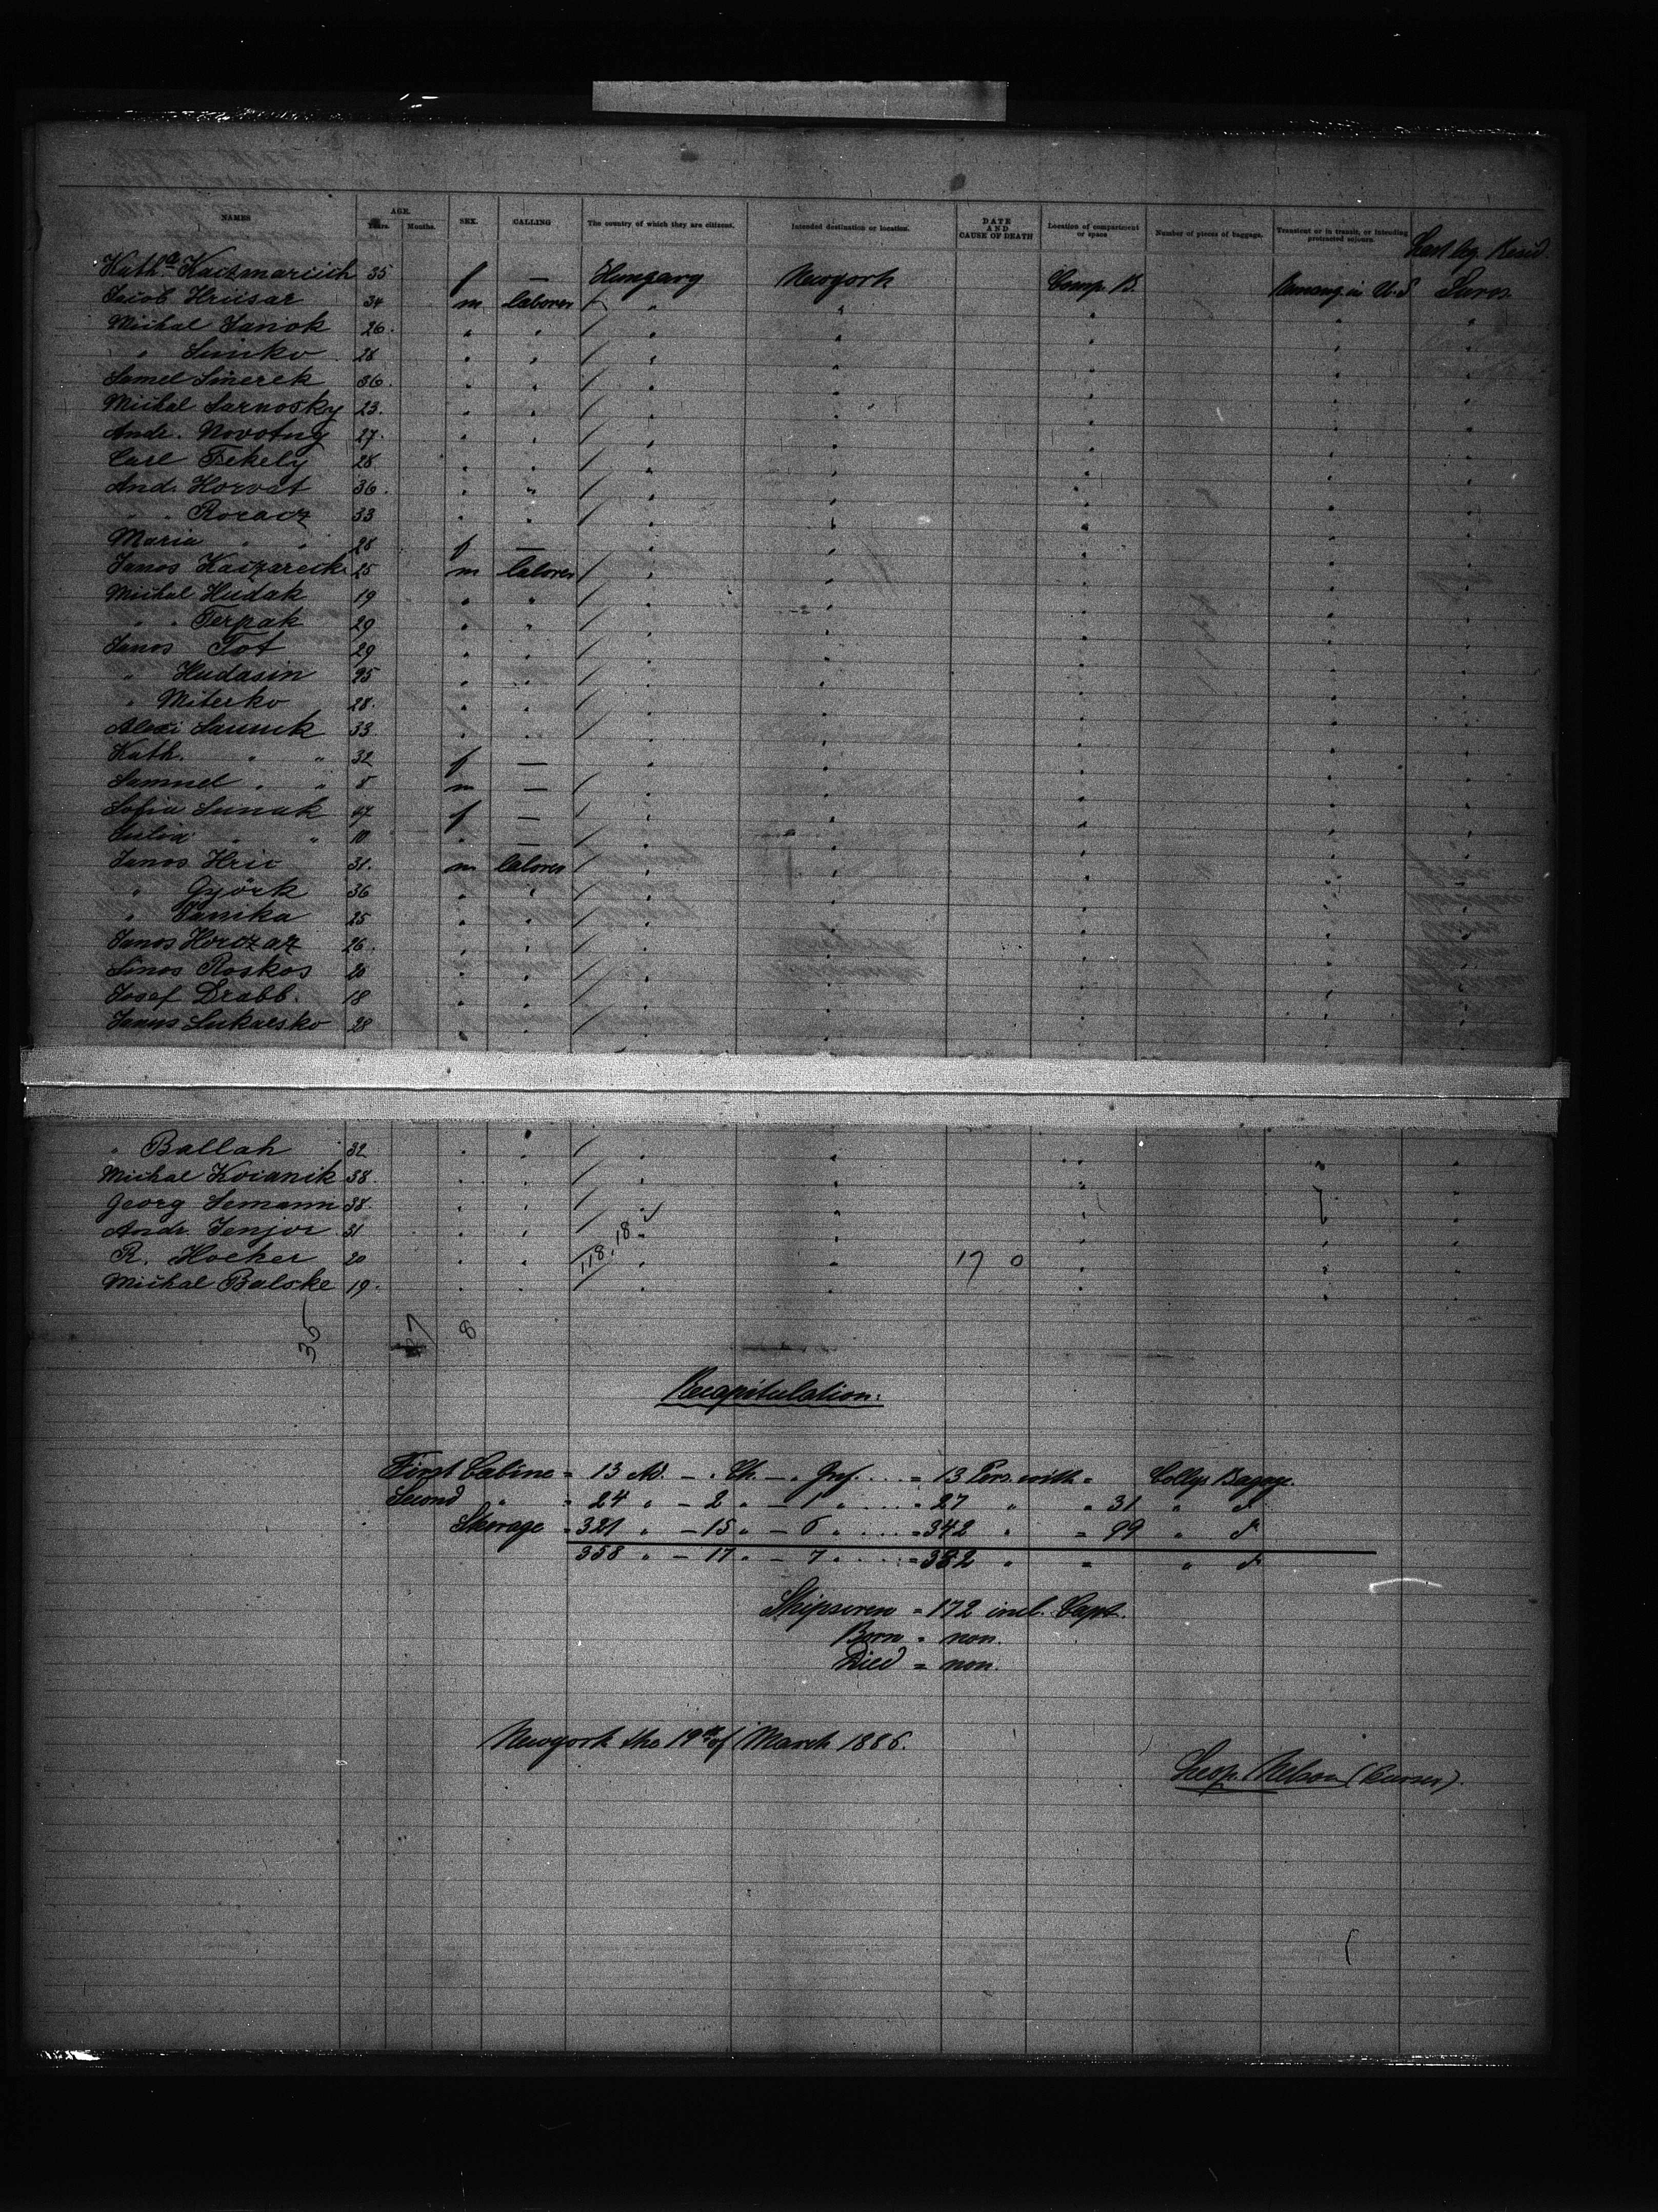 NAMES AGE. Years. Months. SEX. CALLING The country of which they are citizens. Intended destination or location. DATE AND CAUSE OF DEATH Location of compartment or space Number of pieces of baggage. Transient or in transit, or intending protracted sojourn. Last leg. Resid.
Kath. Kaczmarcich 35 f — Hungary Newyork Comp. B. Remang in U.S Saros
Jacob Hriisar 34 m laborer " " " " "
Michal Janok 26. " " " " " " "
" Simko 28 " " " " " " "
Samel Sinerek 36. " " " " " " "
Michal Sarnosky 23. " " " " " " "
Andr. Novotny 27. " " " " " " "
Carl Tekely 28 " " " " " " "
And. Horvat 36. " " " " " " "
" Roracz 33 " " " " " " "
Maria " " 28 f — " " " " "
Janos Kaczareck 25 m laborer " " " " "
Michal Hudak 19 " " " " " " "
" Terpak 29 " " " " " " "
Janos Tot 29 " " " " " " "
" Hudasin 25 " " " " " " "
" Miterko 28. " " " " " " "
Alexi 33 " " " " " " "
Kath. " " 32 f — " " " " "
Samuel " " 8 m — " " " " "
Sofia Sunak 47 f — " " " " "
" " 10 " — " " " " "
Janos Hric 31. m laborer " " " " "
" Györk 36 " " " " " " "
" Janika 25 " " " " " " "
Janos Horczaz 26. " " " " " " "
Roskos 20 " " " " " " "
Josef Drabb. 18 " " " " " " "
Janus Lukacsko 28 " " " " " " "
" Ballah 32 " " " " " " "
Michal Kvianik 38. " " " " " " "
Georg Semann 38. " " " " " " "
Andr. Jenjor 31 " " " " " " "
R. Hocker 20 " " 118. 18 " " 17 0 " " "
Michal Balske 19. " " " " " " "
35 27 8
Recapitulation:
First Cabine = 13 Ad. — " Ch. — " Inf. .... = 13 Pers. with = Collys Bagage.
Second " = 24 " — 2 " — 1 " .... = 27 " = 31 " d°
Steerage = 321 " — 15 " — 6 " .... = 342 " = 99 " d°
358 " — 17 " — 7 " .... = 382 " = " d°
Shipscrew = 172 incl. Capt.
Born = non.
Died = non.
Newyork the 19th of March 1886.
Leop. Nelson (Purser).